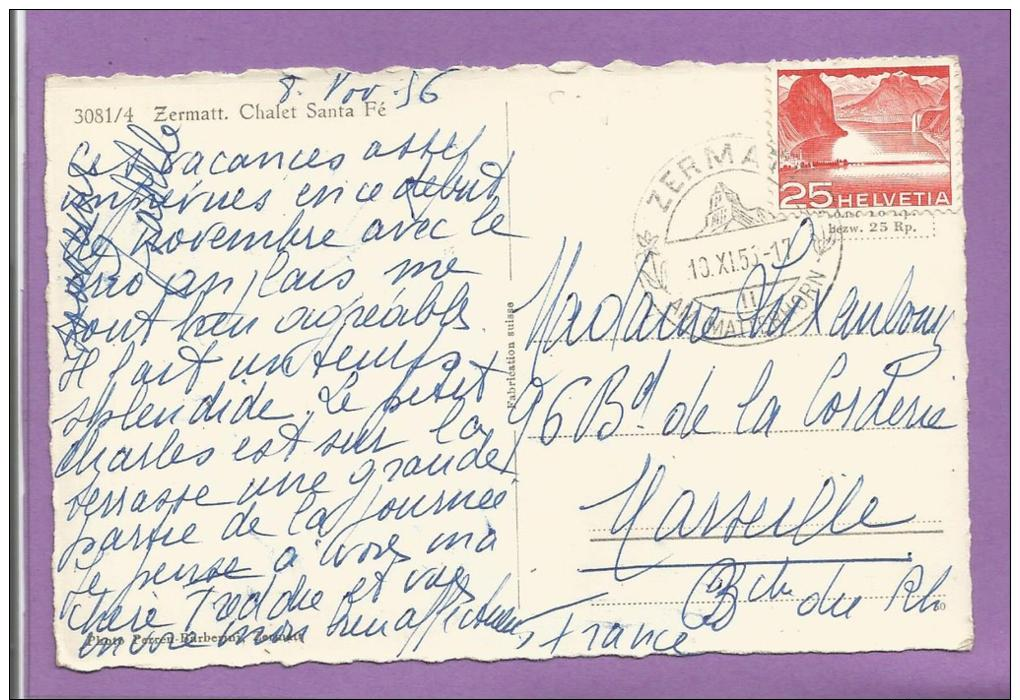 8. Nov. 56
3081/4 Zermatt. Chalet Santa Fé
Ces vacances assez
imprévues en ce début
de novembre avec le
duo anglais me
sont bien agréables.
Il fait un temps
splendide. Le petit
Charles est sur la
terrasse une grande
partie de la journée
Je pense à vous ma
chère Freddie et vous
encore mon bien affectueux
Photo Perren-Barberini, Zermatt
Fabrication suisse
ZERMATT
10.XI.56-17
11
AM MATTERHORN
25 HELVETIA
bezw. 25 Rp.
Madame
96 Bd. de la Corderie
Marseille
Bches du Rh
France